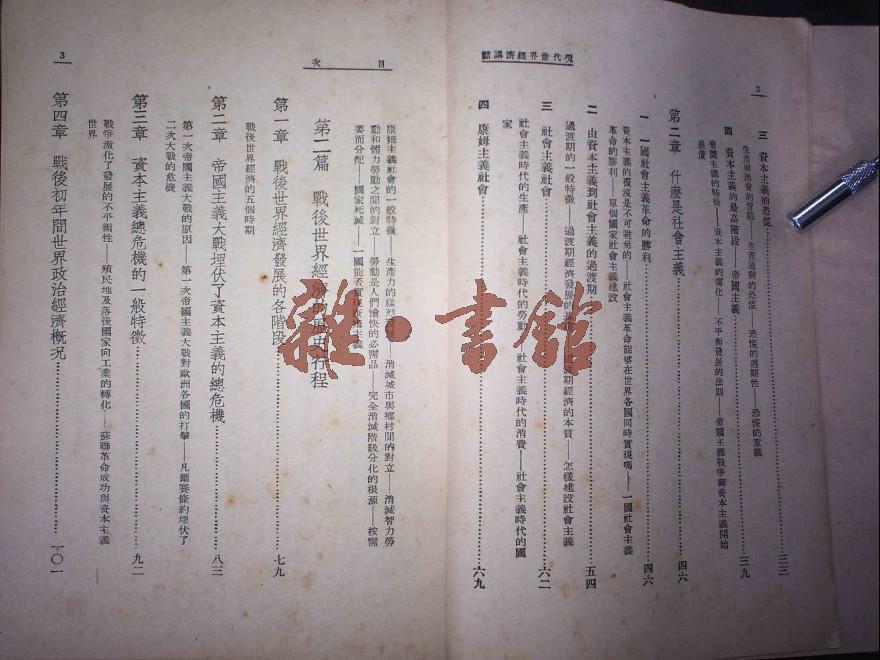 現代世界經濟講話
2
三 資本主義的恐慌……三三
生產與消費的背馳——生產過剩的恐慌——恐慌的週期性——恐慌的意義
四 資本主義的最高階段——帝國主義……三九
帝國主義的特徵——資本主義的腐化——不平衡發展的法則——帝國主義戰爭與資本主義開始
崩潰
第二章 什麼是社會主義……四六
一 一國社會主義革命的勝利……四六
資本主義的覆沒是不可避免的——社會主義革命能夠在世界各國同時實現嗎——一國社會主義
革命的勝利——單個國家社會主義建設
二 由資本主義到社會主義的過渡期……五四
過渡期的一般特徵——過渡期經濟發展的——過渡期經濟的本質——怎樣建設社會主義
三 社會主義社會……六二
社會主義時代的生產——社會主義時代的勞動——社會主義時代的消費——社會主義時代的國
家
四 康姆主義社會……六九
目次
3
康姆主義社會的一般特徵——生產力的猛烈——消滅城市與鄉村間的對立——消滅智力勞
動和體力勞動之間的對立——勞動是人們愉快的必需品——完全消滅階級分化的根源——按需
要而分配——國家死滅——一國能否實現康姆主義
第二篇 戰後世界經濟的歷史行程
第一章 戰後世界經濟發展的各階段……七九
戰後世界經濟的五個時期
第二章 帝國主義大戰埋伏了資本主義的總危機……八三
第一次帝國主義大戰的原因——第一次帝國主義大戰對歐洲各國的打擊——凡爾賽條約埋伏了
二次大戰的危機
第三章 資本主義總危機的一般特徵……九二
戰爭激化了發展的不平衡性——殖民地及落後國家向工業的轉化——蘇聯革命成功與資本主義
世界
第四章 戰後初年間世界政治經濟概況……一〇一
雜·書館